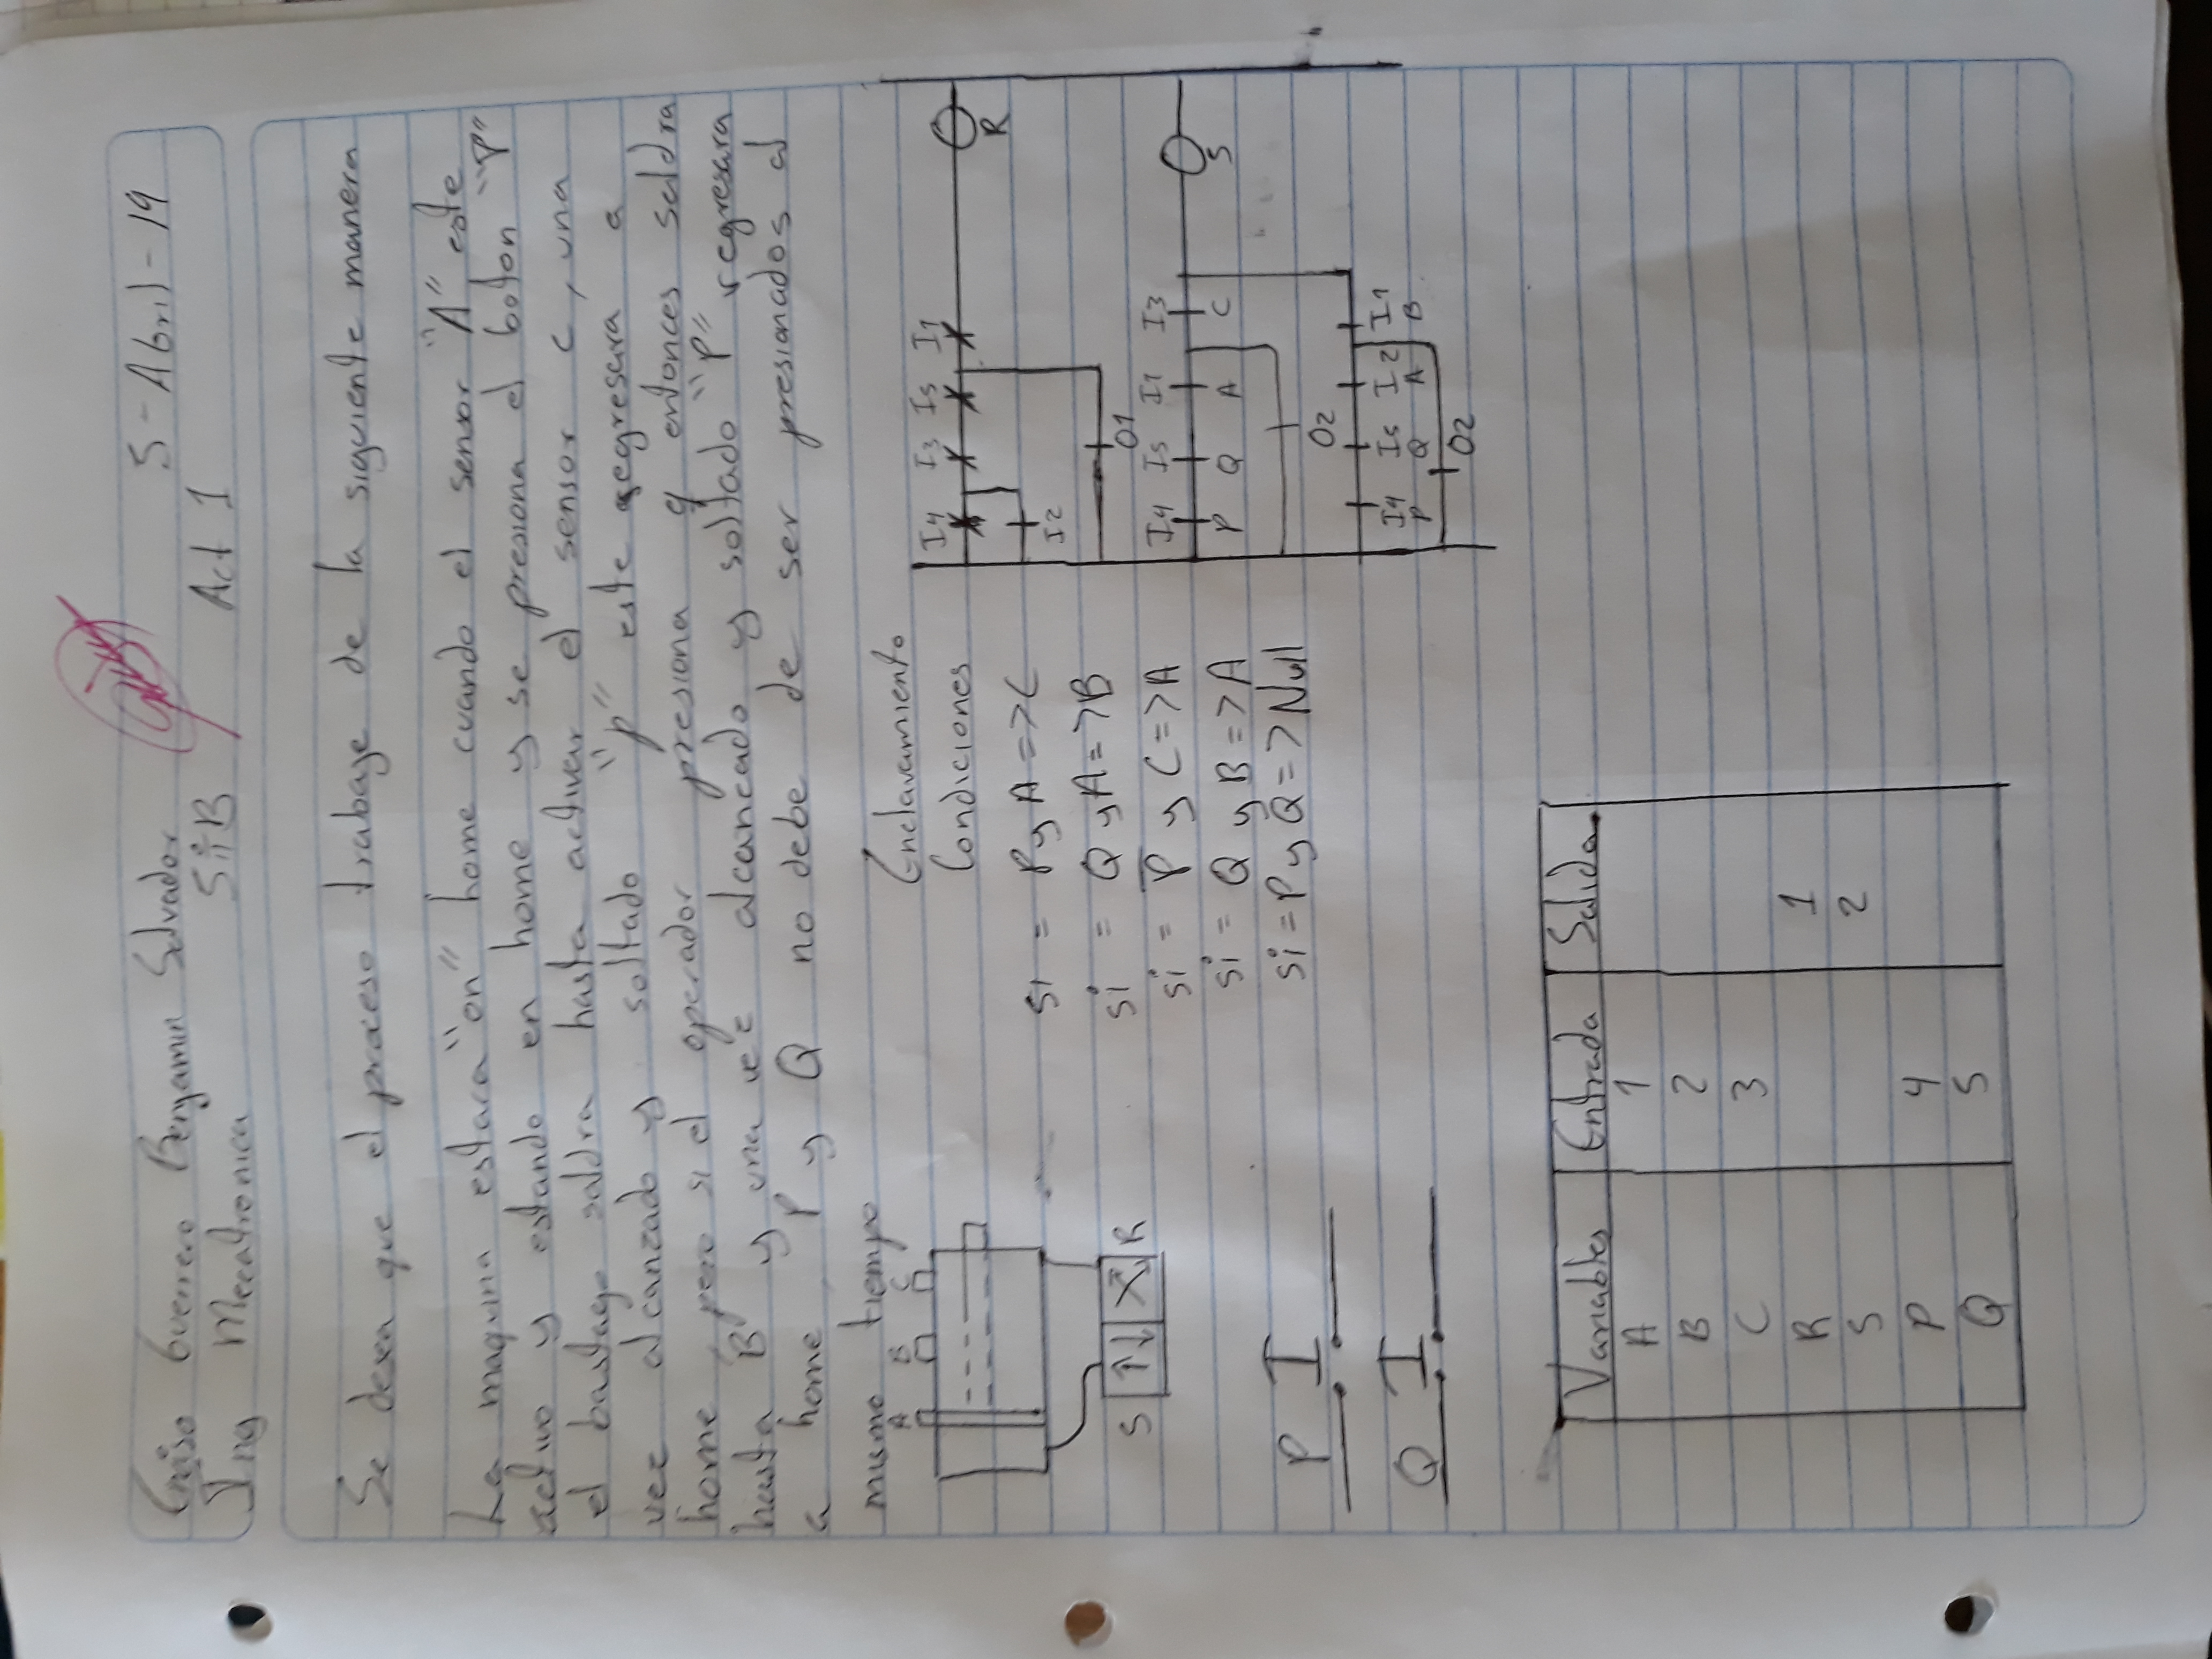 Guerrero Benjamin Salvador 5-Abril-19
Ing Mecatronica 5iiB Act 1
Se desea que el proceso trabaje de la siguiente manera
La maquina estara "on" home cuando el sensor "A" este
activo y estando en home y se presiona el boton "P"
el bastago saldra hasta activar el sensor C, una
vez alcanzado y soltado "p" este regresara a
home, pero si el operador presiona q entonces saldra
hasta B y una vez alcanzado y soltado "P" regresara
a home, P y Q no debe de ser presionados al
mismo tiempo
A B C
S R
P I
Q I
Enclavamiento
Condiciones
si = P y A => C
si = Q y A => B
si = P̅ y C => A
si = Q y B => A
si = P y Q => Null
I4 I3 I5 I1
R
I2
O1
I4 I5 I1 I3
P Q A C S
O2
I4 I5 I2 I1
P Q A B
O2
Variables Entrada Salida
A 1
B 2
C 3
R 1
S 2
P 4
Q 5